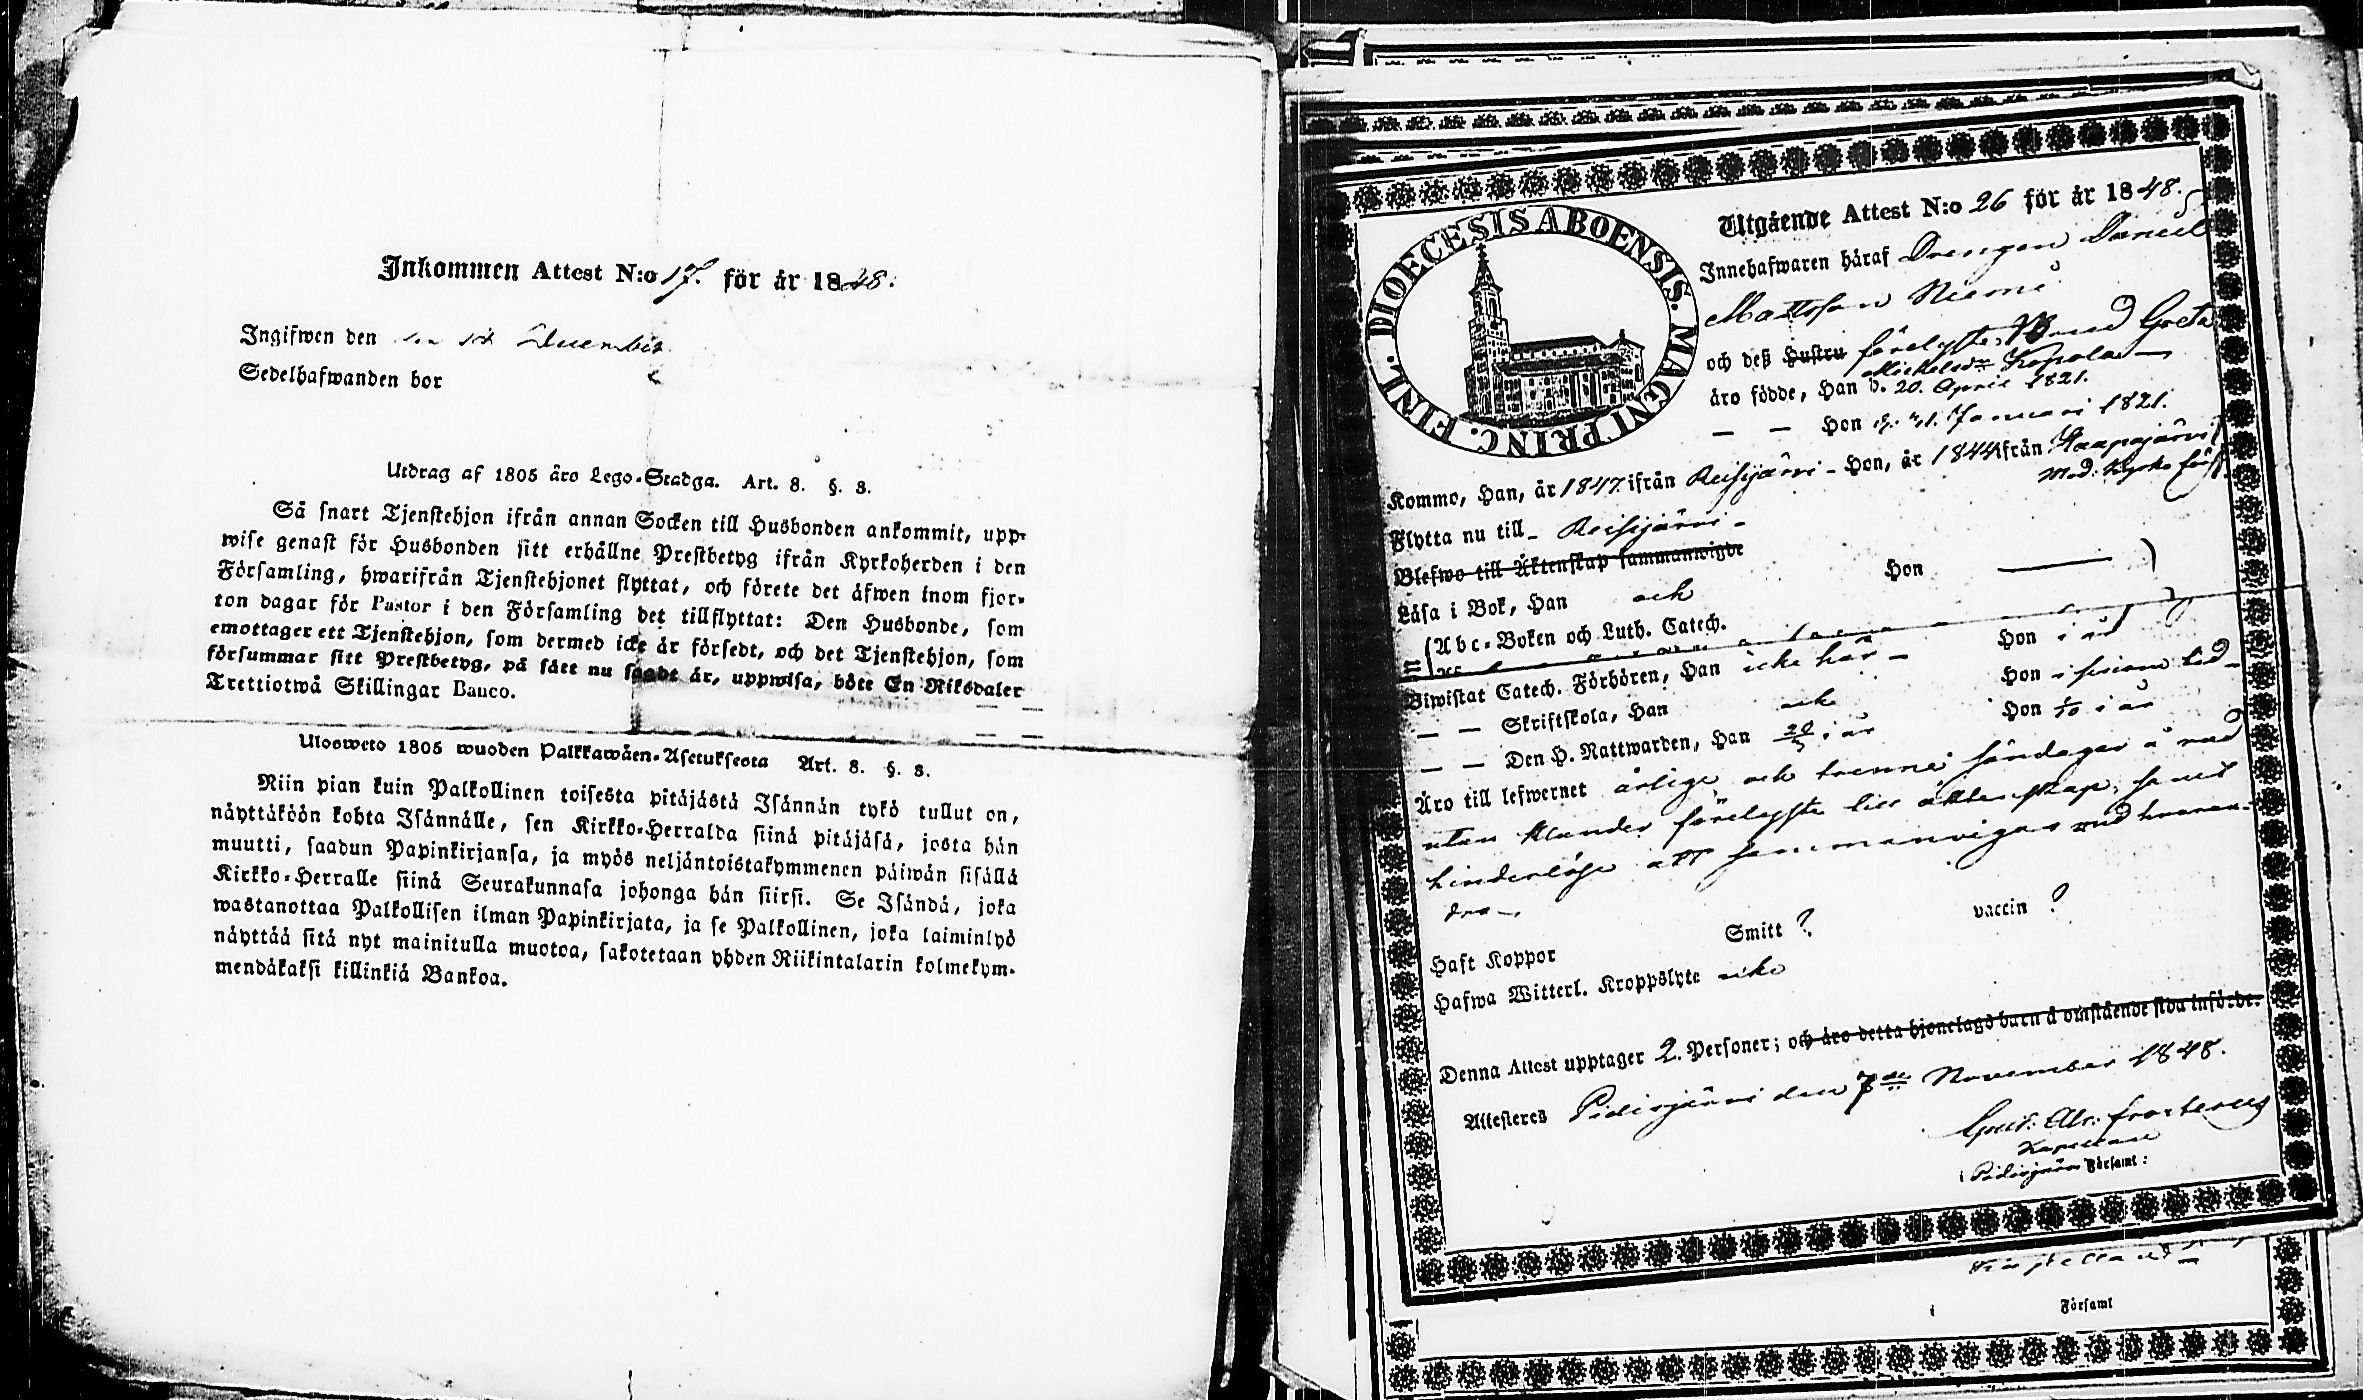 Inkommen Attest N:o 17. för år 1848.
Ingifwen den 14 December
Sedelhafwanden bor
Utdrag af 1805 åro Lego-Stadga. Art. 8. §. 3.
Så snart Tjenstehjon ifrån annan Socken till Husbonden ankommit, upp-
wise genast för Husbonden sitt erhållne Prestbetyg ifrån Kyrkoherden i den
Församling, hwarifrån Tjenstehjonet flyttat, och förete det äfwen inom fjor-
ton dagar för Pastor i den Församling det tillflyttat: Den Husbonde, som
emottager ett Tjenstehjon, som dermed icke är försedt, och det Tjenstehjon, som
försummar sitt Prestbetyg, på sätt nu sagdt är, uppwisa, böte En Riksdaler
Trettiotwå Skillingar Banco.
Ulosweto 1805 wuoden Palkkawäen-Asetuksesta Art. 8. §. 3.
Niin pian kuin Palkollinen toisesta pitäjästä Isännän tykö tullut on,
näyttäköön kohta Isännälle, sen Kirkko-Herralda siinä pitäjäsä, josta hän
muutti, saadun Papinkirjansa, ja myös neljäntoistakymmenen päiwän sisällä
Kirkko-Herralle siinä Seurakunnasa johonga hän siirsi. Se Isändä, joka
wastanottaa Palkollisen ilman Papinkirjata, ja se Palkollinen, joka laiminlyö
näyttää sitä nyt mainitulla muotoa, sakotetaan yhden Riikintalarin kolmekym-
mendäkaksi killinkiä Bankoa.
DIOECESIS ABOENSIS. MAGNI PRINC. FINL.
Utgående Attest N:o 26 för år 1848.
Innehafwaren häraf Drengen Daniel
Mattsson Niemi
och deß Hustru förelyste Brud Greta
Mickelsdr Kopola
äro födde, Han d. 20. April 1821.
— — Hon d. 21. Januari 1821.
Kommo, Han, år 1847 ifrån Reisjärvi - Hon, år 1844 ifrån Haapajärvi
Mod: Kyrko förs
Flytta nu till - Reisjärvi -
Blefwo till Äktenskap sammanwigde
Läsa i Bok, Han och Hon —
Abc-Boken och Luth. Catech.
Biwistat Catech. Förhören, Han icke här - Hon i år
— — Skriftskola, Han och Hon i sinom tid -
— — Den H. Nattwarden, Han 20/5 i år Hon 1/10 i år
Äro till lefwernet ärlige, och trenne söndagar å rad
utan klander förelyste till äktenskap, samt
hinderlöse att sammanvigas med hvaran-
dra -.
Haft Koppor Smitt ? vaccin ?
Hafwa Witterl. Kroppslyte icke
Denna Attest upptager 2. Personer; och äro detta hjonelags barn å omstående sida införde.
Attesteres Pidisjärvi den 7de November 1848.
Gust: Abr: Frosterus
Kapellan
i Pidisjärvi Församl:
i Församl